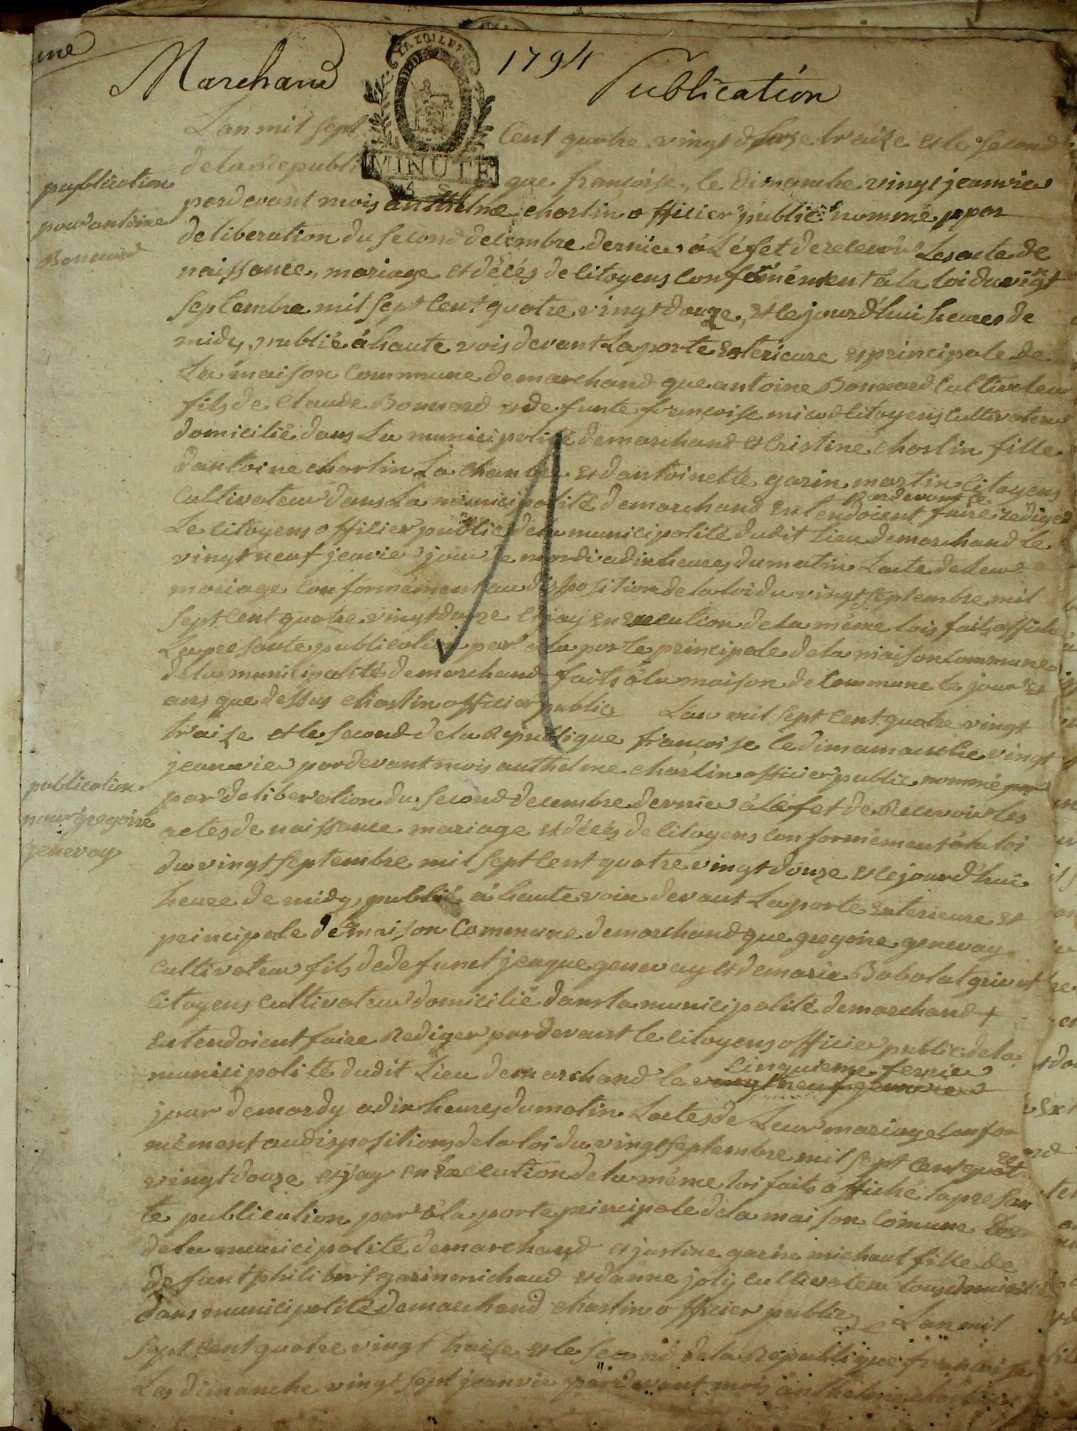 me
Marchand 1794 Publication
LA LOI LE R
MINUTE
4 S
L'an mil sept Cent quatre vingt traize et le second
de la republi que françoise, le dimanche vingt jeanvie
publication
pour antoine
Bonnard
pardevant mois anthelme charlin officier public nommé par
deliberation du second decembre dernier à l'éfet de recevoir les acte de
naissance, mariage et décés de citoyens conformément à la loi du vigt
septembre mil sept Cent quatre vingt douze, et le jourd'hui heures de
midy, publié à haute vois devant la porte exterieure et principale de
La maison Commune de marchand que antoine Bonnard Cultivateur
fils de Claude Bonnard et de funte françoise citoyens Cultivateur
domicilié dans La municipalité de marchand et Cristine charlin fille
d'antoine charlin La Chambre et d'antoinette garin martin Citoyens
Cultivateur dans La municipalité de marchand entendoient faire rediger
Pardevant le
Le citoyens officier public de la municipalité dudit Lieu de marchand le
vingt neuf jeavier jour de mardi a dix heures du matin L'acte de leur
mariage Conformément au disposition de la loi du vingt septembre mil
sept cent quatre vingt douze et j'ay en execution de la même lois fait affiché
La presente publication par à la porte principale de la maison Commune
de la municipalité de marchand faits à la maison de Commune le jour et
ans que dessus charlin officier public L'an mil sept Cent quatre vingt
traize et le second de la Republique françoise le dimamanche vingt
jeanvie pardevant mois anthelme charlin officier public nommé par
publication
pour gregoire
genevay
par deliberation du second decembre dernier à l'éfet de Recevoir les
actes de naissance mariage et décés de citoyens conformément à la loi
du vingt septembre mil sept Cent quatre vingt douze et le jourd'hui
heure de midy, publié à haute voix devant La porte exterieure et
principale de maison Commune de marchand que gregoire genevay
Cultivateur fils de defunct jeaque genevay et de marie Babolat
Citoyens Cultivateur domicilié dans la municipalité de marchand +
entendoient faire Rediger pardevant le citoyens officier public de la
Cinquieme fevrie
municipalité dudit Lieu de marchand le vingt neuf jeanvier
jour de mardy a dix heures du matin L'actes de Leur mariage Confor
mément au dispositions de la loi du vingt septembre mil sept Cent quat
vingt douze et j'ay en execution de la même loi faits affiché la presen
te publication par à la porte principale de la maison Comune
de la municipalité de marchand et justine garin michaut fille de
defunt philibert garin michaud et d'anne joly cultivateur
dans municipalité de marchand charlin officier public L'an mil
sept Cent quatre vingt traise et le second de la Republique françoise
Le dimanche vingt sept jeanvie pardevant mois anthelme charlin